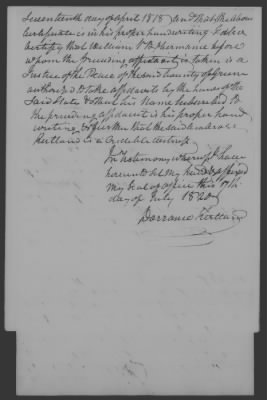 Seventeenth day of April 1818 and that the above
Certificate is in his proper handwriting I also
Certify that William V B Hermance before
whom the preceeding affidavit is taken is a
Justice of the Peace of the said County of Greene
authorized to take affidavits by the laws of the
said State & that his Name Subscribed to
the preceeding affidavit is his proper hand
writing & further that the said
Kirtland is a Credible
In Testimony whereof I have
hereunto Set My hand & affixed
My Seal of office this 17th
day of July 1820
Dorrance Kirtland